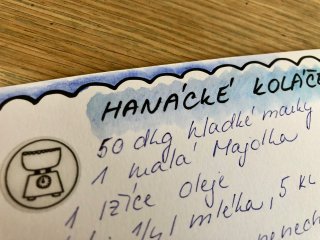 HANÁCKÉ KOLÁČE
50 dkg hladké mouky
1 malá Majolka
1 lžíce oleje
1/4 l mléka, 5 kč